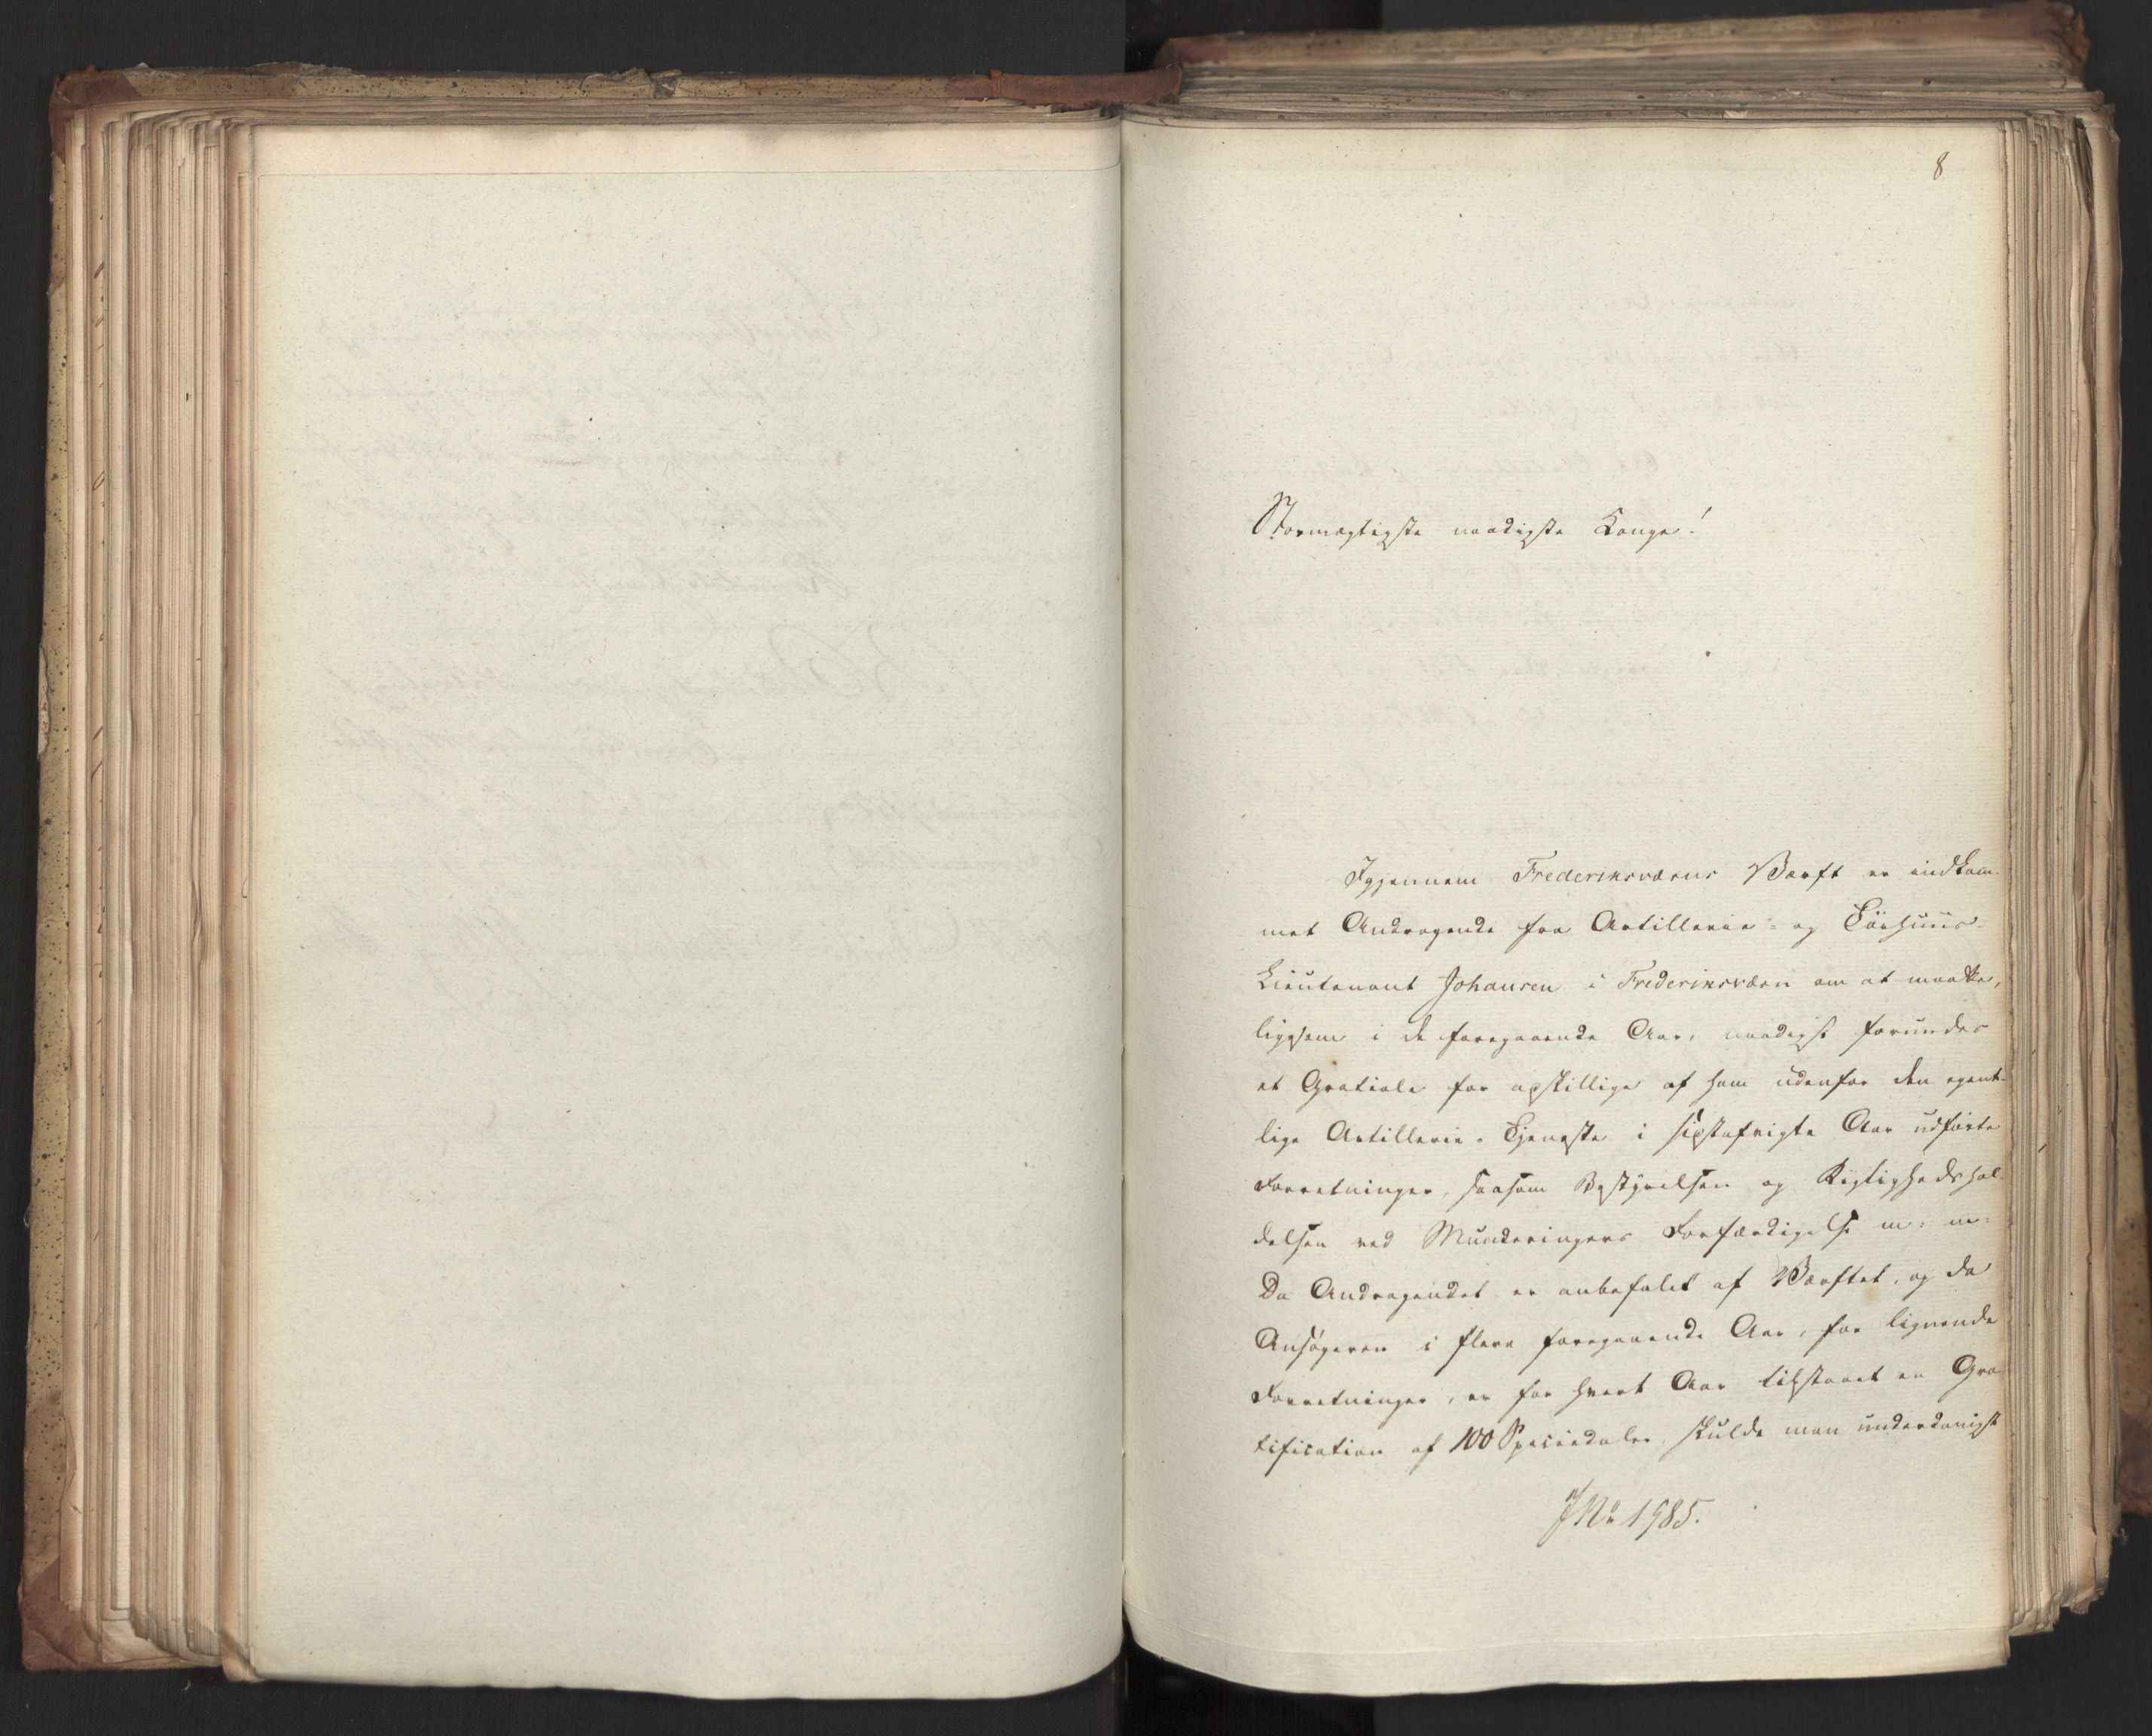 8
Stormægtigste naadigste Konge!
Igjennem Frederiksværns Værft er indkom-
met Andragende fra Artillerie- og Töihuus-
Lieutenant Johansen i Frederiksværn om at maatte,
ligesom i de foregaaende Aar, naadigst forundes
et Gratiale for adskillige af ham udenfor den egent-
lige Artillerie-Tjeneste i sidstafvigte Aar udførte
Forretninger, saasom Bestyrelsen og Rigtighedshol-
delsen ved Munderingers Forfærdigelse m: m:
Da Andragendet er anbefalet af Værftet, og da
Ansøgeren i flere foregaaende Aar, for lignende
Forretninger, er for hvert Aar tilstaaet en Gra
tification af 100 Speciedaler, skulde man underdanigst
JNo 1985.